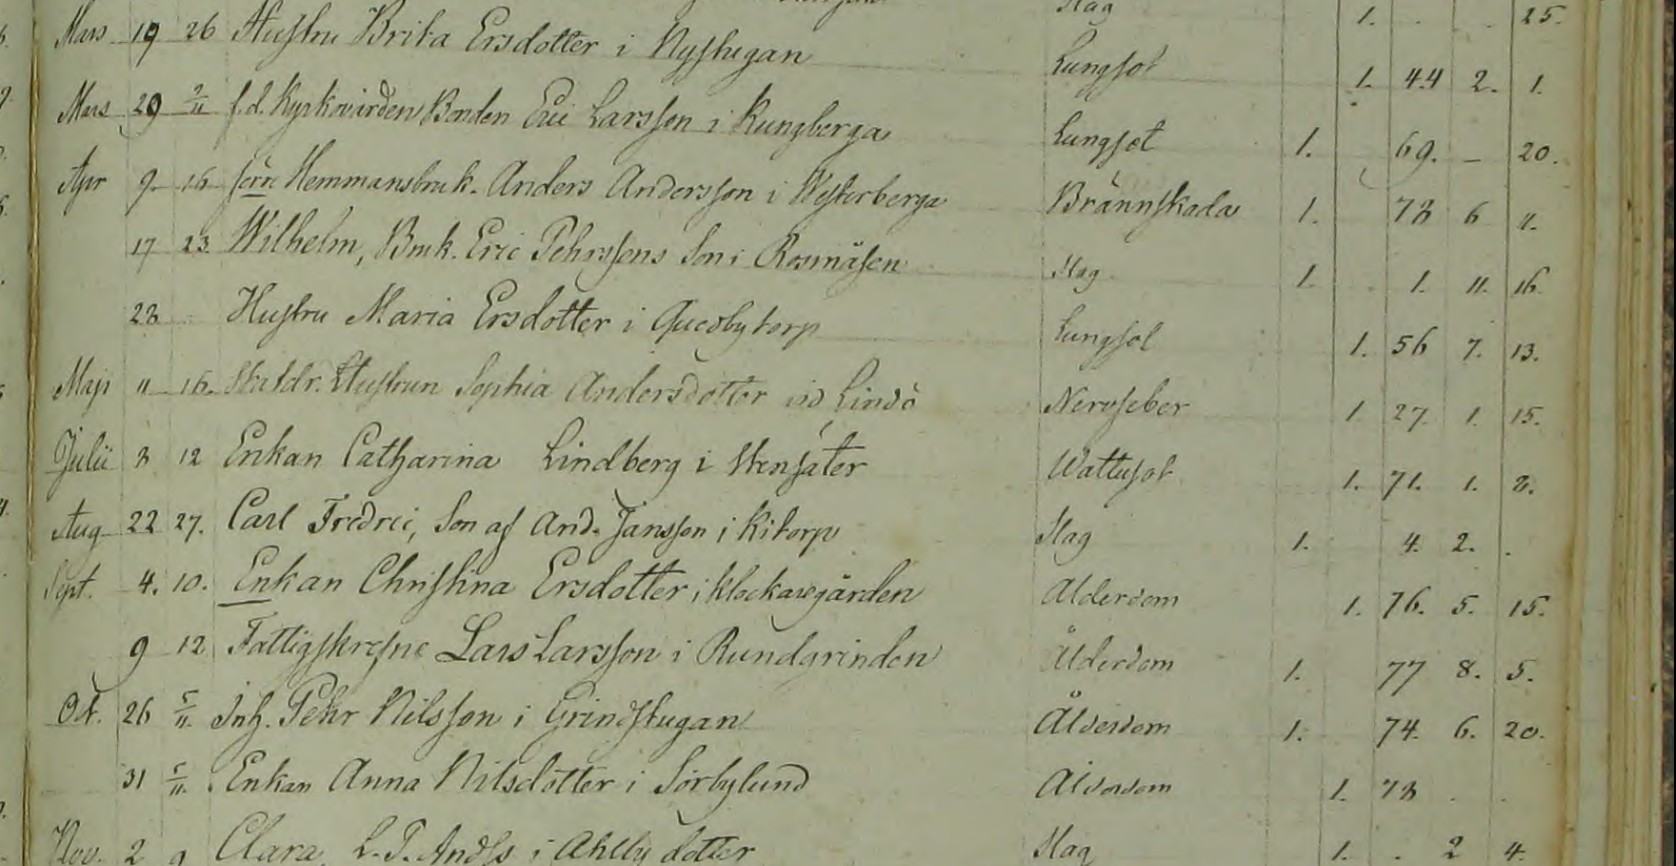 Slag 1. 25.
Mars 19 26 Hustru Brita Ersdotter i Nystugan Lungsot 1. 44 2. 1.
Mars 29 2/11 f.d. Kyrkovärden Bonden Eric Larsson i Kungberga Lungsot 1. 69. – 20.
Apr 9 16 förre Hemmansbruk. Anders Andersson i Westerberga Brännskada 1. 78 6 11.
17 23 Wilhelm, Bruk. Eric Pehrssons Son i Rosmåsen Slag 1. 1. 11. 16.
28 Hustru Maria Ersdotter i Quedbytorp Lungsot 1. 56 7. 13.
Maji 11 16. Statdr. Hustrun Sophia Andersdotter vid Lindö Nervfeber 1. 27. 1. 15.
Julii 8 12 Enkan Catharina Lindberg i Stensäter Wattusot 1. 71. 1. 8.
Aug 22 27. Carl Fredric, Son af And. Jansson i Kitorp Slag 1. 4. 2. .
Sept. 4. 10. Enkan Christina Ersdotter i Klockaregården Ålderdom 1. 76. 5. 15.
9 12 Fattighjon Lars Larsson i Rundgrinden Ålderdom 1. 77 8. 5.
Oct. 26 5/11. Inh. Pehr Nilsson i Grindstugan Ålderdom 1. 74. 6. 20.
31 5/11. Enkan Anna Nilsdotter i Sörbylund Ålderdom 1. 78 . .
Nov. 2 9 Clara, L. P. Andss i Åhlby dotter Slag 1. . 2 4.